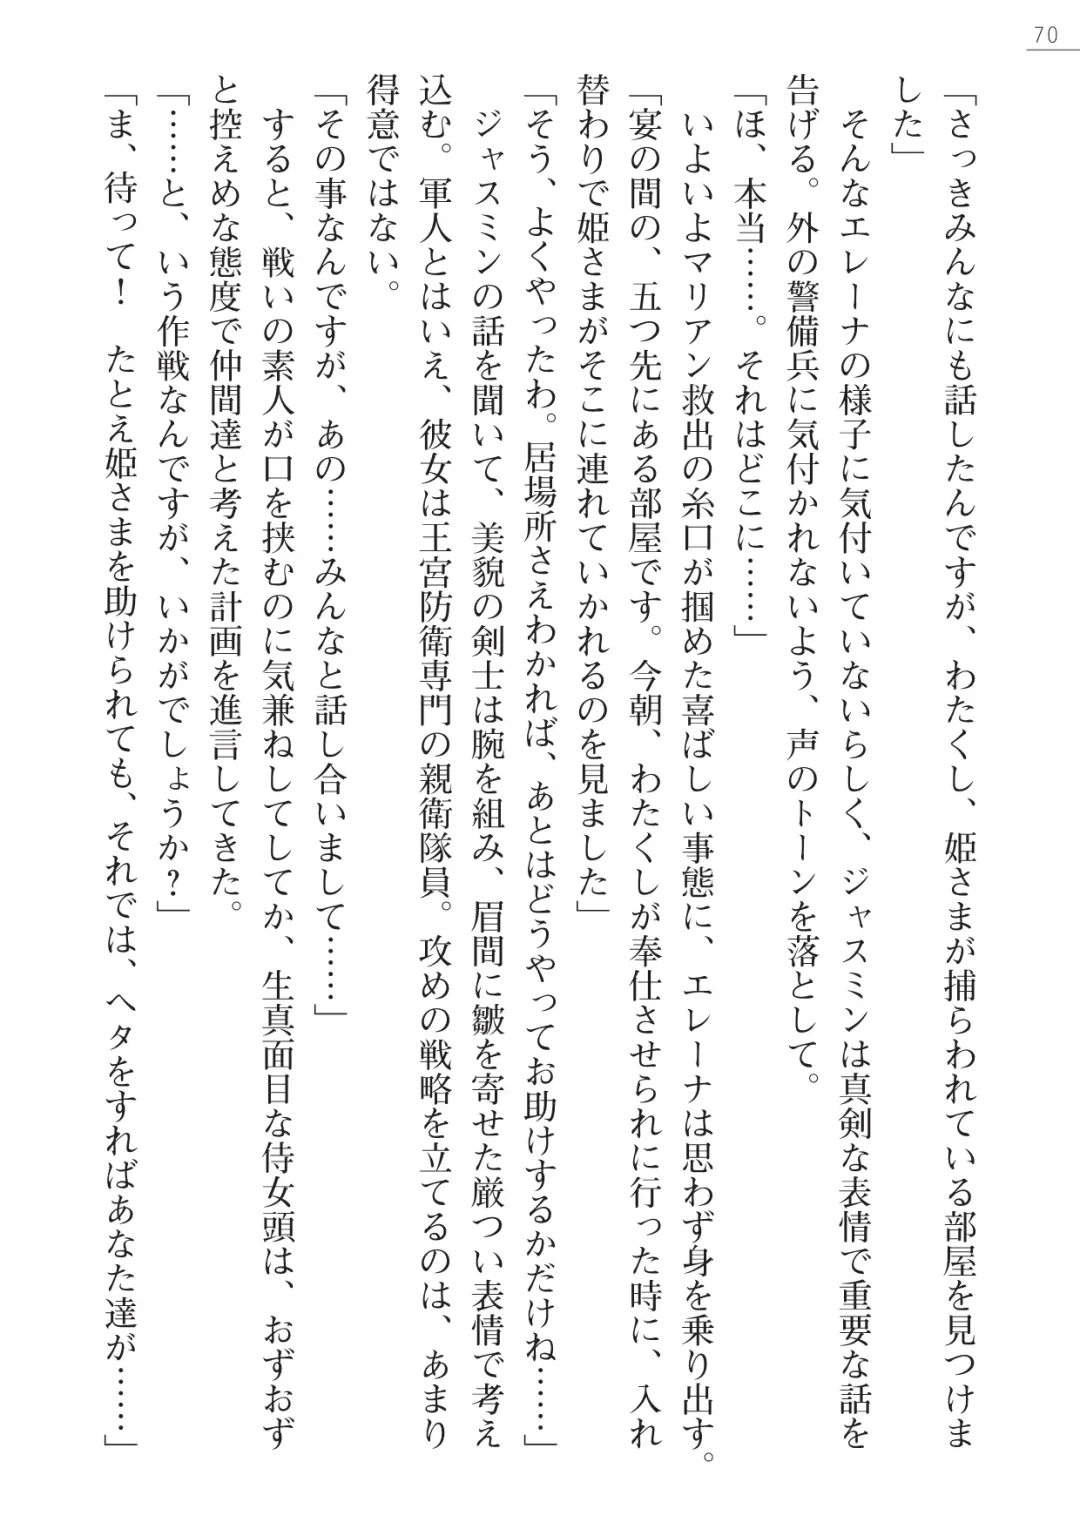 70
「さっきみんなにも話したんですが、わたくし、姫さまが捕らわれている部屋を見つけま
した」
そんなエレーナの様子に気付いていないらしく、ジャスミンは真剣な表情で重要な話を
告げる。外の警備兵に気付かれないよう、声のトーンを落として。
「ほ、本当……。それはどこに……」
いよいよマリアン救出の糸口が掴めた喜ばしい事態に、エレーナは思わず身を乗り出す。
「宴の間の、五つ先にある部屋です。今朝、わたくしが奉仕させられに行った時に、入れ
替わりで姫さまがそこに連れていかれるのを見ました」
「そう、よくやったわ。居場所さえわかれば、あとはどうやってお助けするかだけね……」
ジャスミンの話を聞いて、美貌の剣士は腕を組み、眉間に皺を寄せた厳つい表情で考え
込む。軍人とはいえ、彼女は王宮防衛専門の親衛隊員。攻めの戦略を立てるのは、あまり
得意ではない。
「その事なんですが、あの……みんなと話し合いまして……」
すると、戦いの素人が口を挟むのに気兼ねしてしてか、生真面目な侍女頭は、おずおず
と控えめな態度で仲間達と考えた計画を進言してきた。
「……と、いう作戦なんですが、いかがでしょうか?」
「ま、待って!　たとえ姫さまを助けられても、それでは、ヘタをすればあなた達が……」